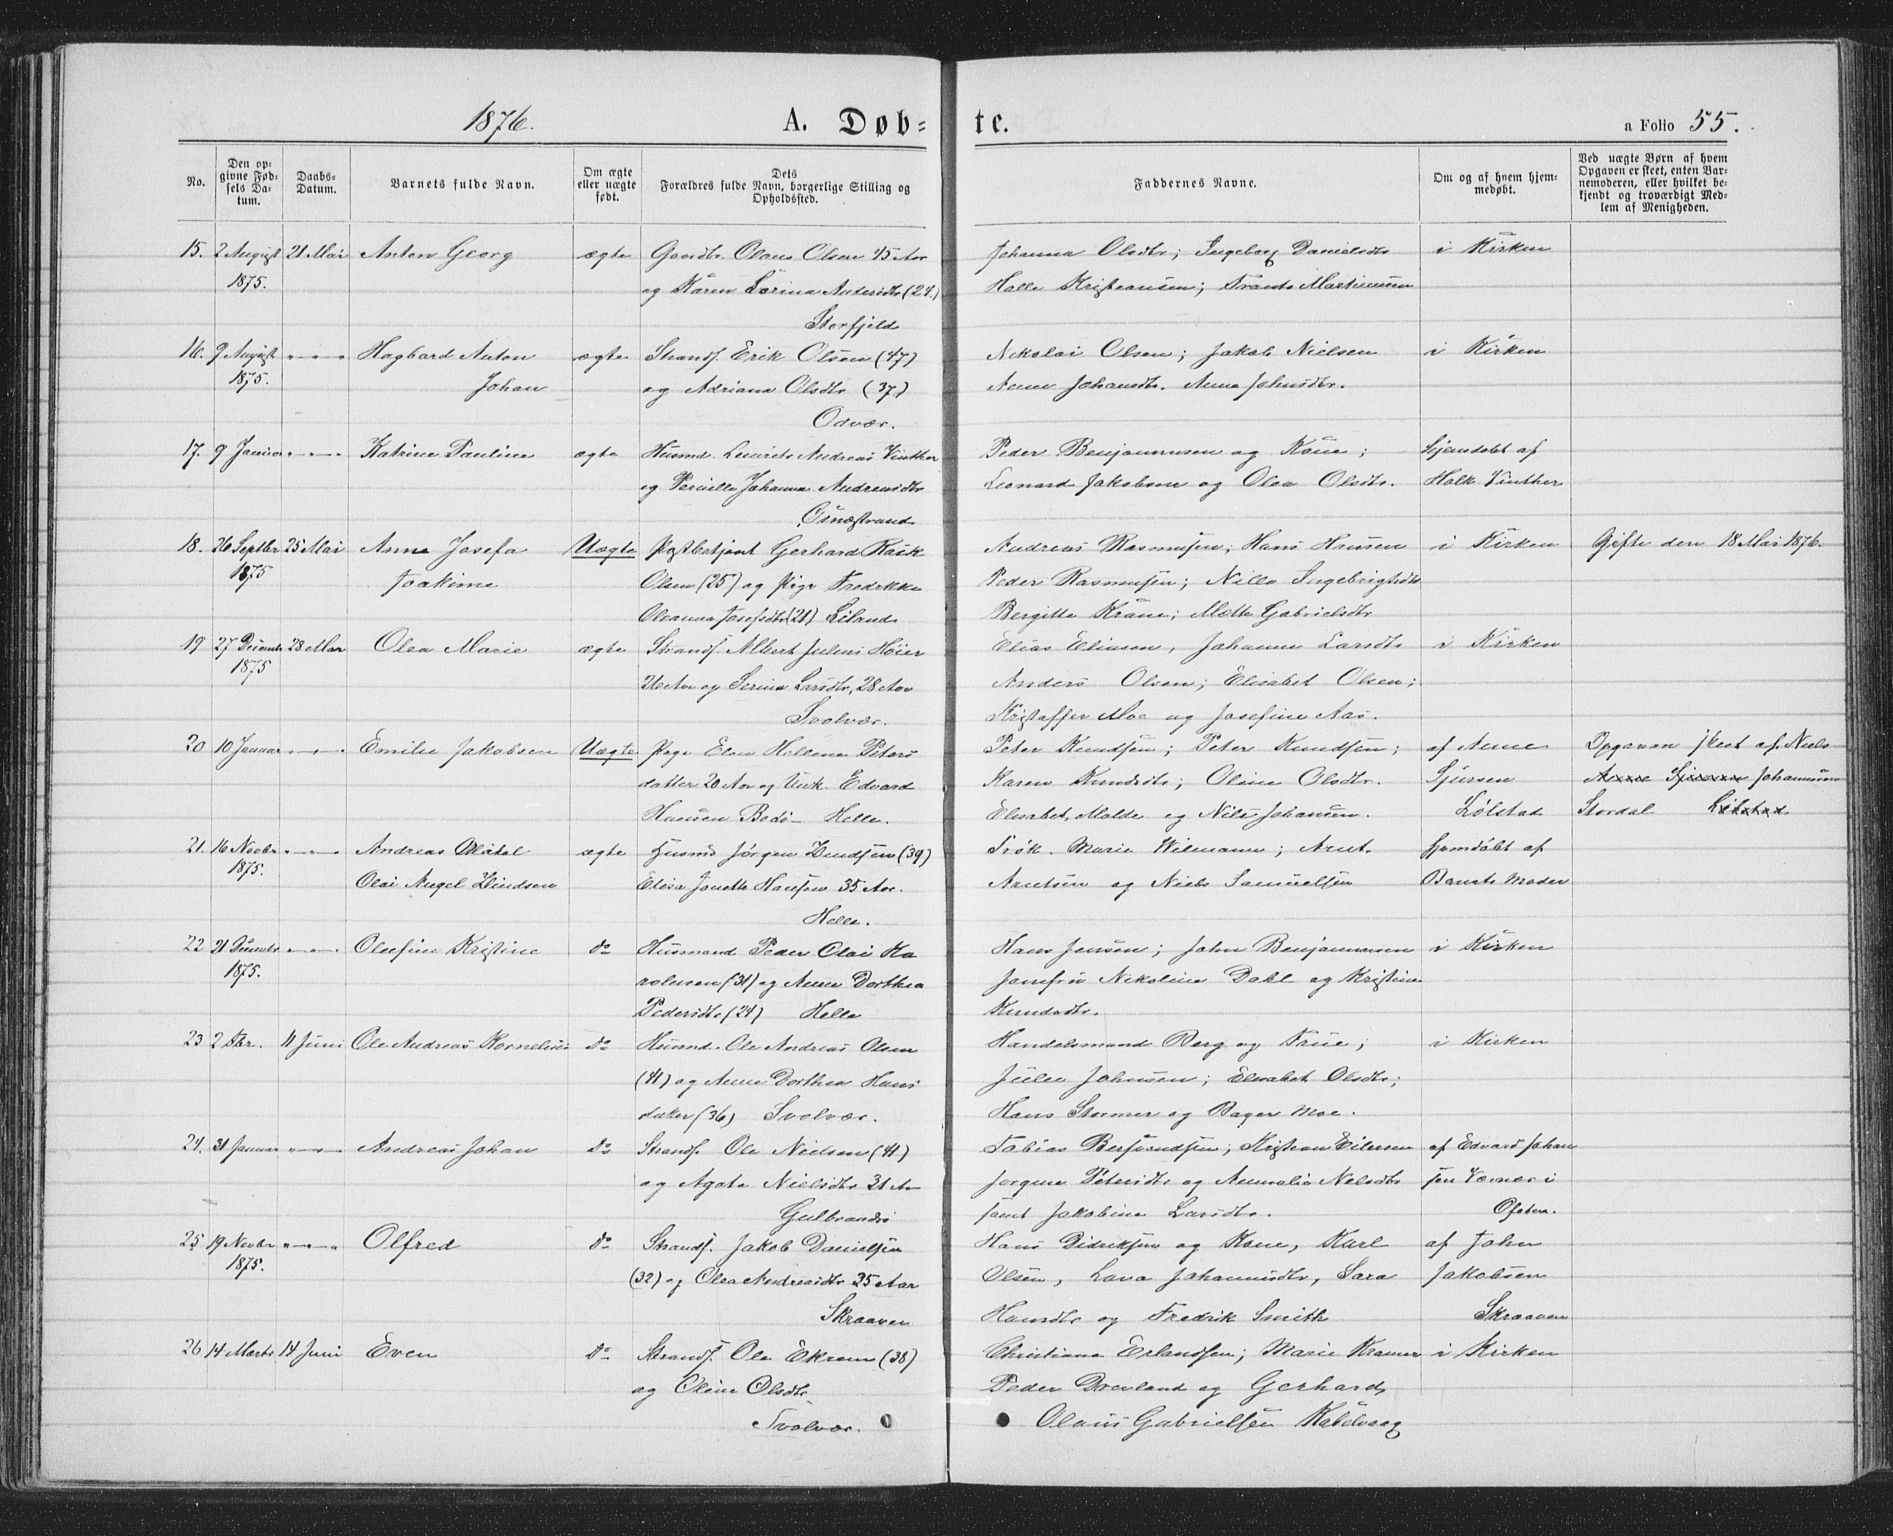 1876. A. Døb= te. a Folio 55.
No.
Den op-
givne Fød-
sels Da-
tum.
Daabs-
Datum.
Barnets fulde Navn.
Om ægte
eller uægte
født.
Dets
Forældres fulde Navn, borgerlige Stilling og
Opholdssted.
Faddernes Navne.
Om og af hvem hjem-
medøbt.
Ved uægte Børn af hvem
Opgaven er skeet, enten Bar-
nemoderen, eller hvilket be-
kjendt og troværdigt Med-
lem af Menigheden.
15. 2 August 21 Mai Anton Georg ægte Gaardbr. Olaus Olsen 45 Aar Johanna Olsdtr; Ingeborg Danielsdtr i Kirken
1875. og Karen Larina Andersdtr (24.) Halle Kristiansen; Trants Martinussen
Storfjeld
16. 9 August " — " Hagbard Anton ægte Strands. Erik Olsen (47) Nikolai Olsen; Jakob Nielsen i Kirken
1875. Johan og Adriana Olsdtr (37) Anne Johansdtr. Anna Johnsdtr.
Odvær.
17. 9 Januar " — " Katrine Pauline ægte Husmd. Andreas Vinther Peder Benjaminsen og Kone; Hjemdøbt af
og Pernille Johanna Andreasdtr Leonard Jakobsen og Olea Olsdtr. Halk Vinther
Osnæstrand
18. 26 Septbr 25 Mai Anna Josefa Uægte Postbetjent Gerhard Raik Andreas Rasmussen; Hans Hansen i Kirken Gifte den 18 Mai 1876.
1875 Joakime Olsen (25) og Pige Fredrikke Peder Rasmussen; Nille Ingebrigtsdtr
Oleanna Josefsdtr (21) Liland Bergitte Krane; Mette Gabrielsdtr
19 27 Decembr 28 Mai Olea Marie ægte Strands. Albert Julius Høier Elias Eliasen, Johanna Larsdtr i Kirken
1875 26 Aar og Serina Larsdtr, 28 Aar Anders Olsen; Elisabet Olsen;
Svolvær. Kristoffer Moe og Josefine Aas.
20 10 Januar " — " Emilie Jakobsen Uægte Pige Elen Hellena Peters Peter Knudsen; Peter Knudsen; af Anne Opgaven skeet af Niels
datter 20 Aar og Unk. Edvard Karen Knudsdtr; Oline Olsdtr. Sjursen Anne Sjursen Johannesen
Hansen Bodø — Helle. Elisabet Molde og Nils Johansen. Lølstad Stordal
21. 16 Novbr " — " Andreas ægte Husmd Jørgen Knudsen (39) Frøk. Marie Wilmann; Arnt Hjemdøbt af
1875. Olai Angel Knudsen Elisa Jonette Hansen 35 Aar. Arntsen og Niels Samuelsen Barnets Moder
Helle.
22 21 Decembr " — " Olufine Kristine do Husmand Peder Olai Ka Hans Jensen; John Benjaminsen i Kirken
1875. rolusen (31) og Anne Dorthea Jomfru Nikoline Dahl og Kristine
Pedersdtr (24) Helle Knudsdtr.
23 2 Febr. 11 Juni Ole Andreas Kornelius do Husmd. Ole Andreas Olsen Handelsmand Berg og Frue; i Kirken
(41) og Anne Dorthea Hans Julie Johnsen; Elisabet Olsdtr;
datter (36) Svolvær. Hans Stormer og Bager Moe.
24. 31 Januar " — " Andreas Johan do Strands. Ole Nielsen (41) Tobias Bersvendsen; Kristian Eilersen af Edvard Johan
og Agate Nielsdtr 31 Aar Jørgine Petersdtr og Annalia Nilsdtr sen Værnes i
Gulbrandsø samt Jakobine Larsdtr. Ofoten.
25 19 Novbr " — " Olfred do Strands. Jakob Danielsen Hans Didriksen og Kone, Karl af John
1875. (32) og Olea Andreasdtr 35 Aar Olsen, Lava Johannesdtr, Sara Jakobsen
Skraaven Hansdtr og Fredrik Smith Skraaven
26 14 Marts 14 Juni Even do Strands. Ole Ekrem (38) Christiane Erlandsen; Marie Kramer i Kirken
og Oline Olsdtr Peder Drevland og Gerhard
Svolvær. Olaus Gabrielsen Kabelvaag